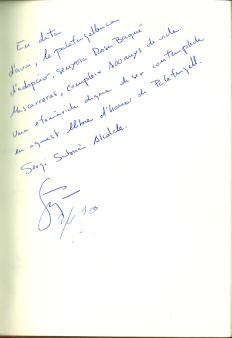 En data
d'avui, la palafrugellenca
d'adopció, senyora Rosa Bagué
Mascarreras, compleix 100 anys de vida.
Una efemèride digna de ser contemplada
en aquest llibre d'honor de Palafrugell.
Sergi Sabrià. Alcalde.